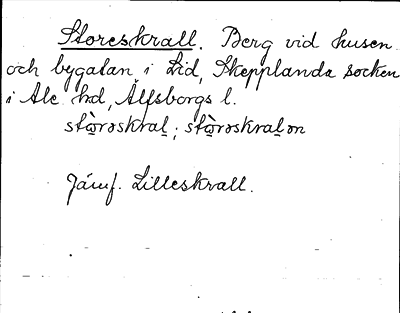 Storeskrall. Berg vid husen
och bygatan i Lid, Skepplanda socken
i Ale hd, Älfsborgs l.
stὼrəskral; stὼrəskralən
Jämf. Lilleskrall.